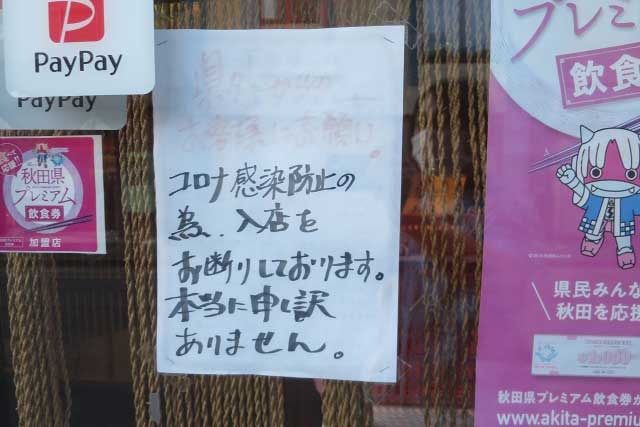 PayPay
PayPay
秋田県
プレミアム
飲食券
加盟店
お客様にお願い。
コロナ感染防止の
為、入店を
お断りしております。
本当に申し訳
ありません。
プレミアム
飲食券
県民みんな
秋田を応援
秋田県プレミアム飲食券が
www.akita-premiu